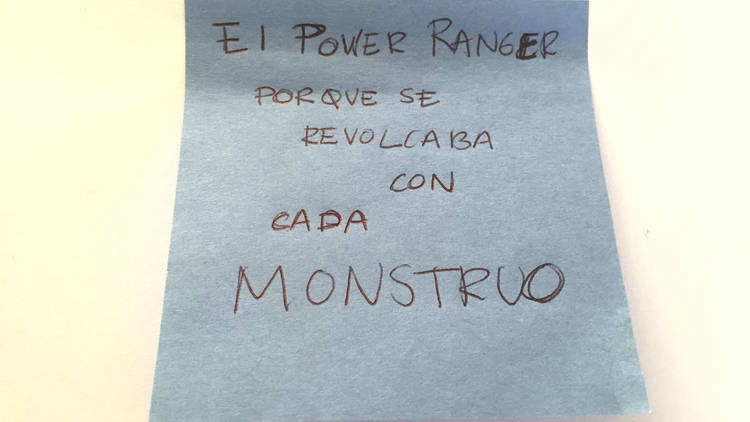 El POWER RANGER
PORQUE SE
REVOLCABA
CON
CADA
MONSTRUO